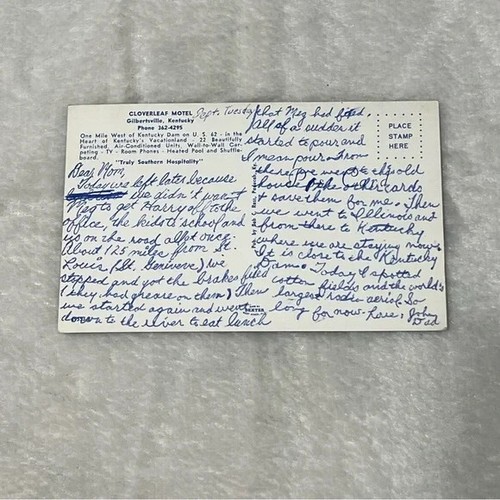 CLOVERLEAF MOTEL
Gilbertsville, Kentucky
Phone 362-4295
One Mile West of Kentucky Dam on U. S. 62 - in the
Heart of Kentucky's Vacationland 22 Beautifully
Furnished Air-Conditioned Units, Wall-to-Wall Car-
peting - TV - Room Phones - Heated Pool and Shuffle-
board.
"Truly Southern Hospitality"
Sept. Tuesday
Dear Mom,
Today we left later because
we didn't want
Meg to get Harry off to the
office, the kids to school and
us on the road all at once.
About 125 miles from St.
Louis (St. Genevieve) we
stopped and got the brakes fixed
(they had grease on them) Then
we started again and went
down to the river to eat lunch
that Meg had fixed.
All of a sudden it
started to pour and
I mean pour. From
there we went to
house the old cards
to save them for me. Then
we went to Illinois and
from there to Kentucky
where we are staying now.
It is close to the Kentucky
Dam. Today I spotted
cotton fields and the world's
largest radio aerial. So
long for now. Love, John
Dad
PLACE
STAMP
HERE
DEXTER